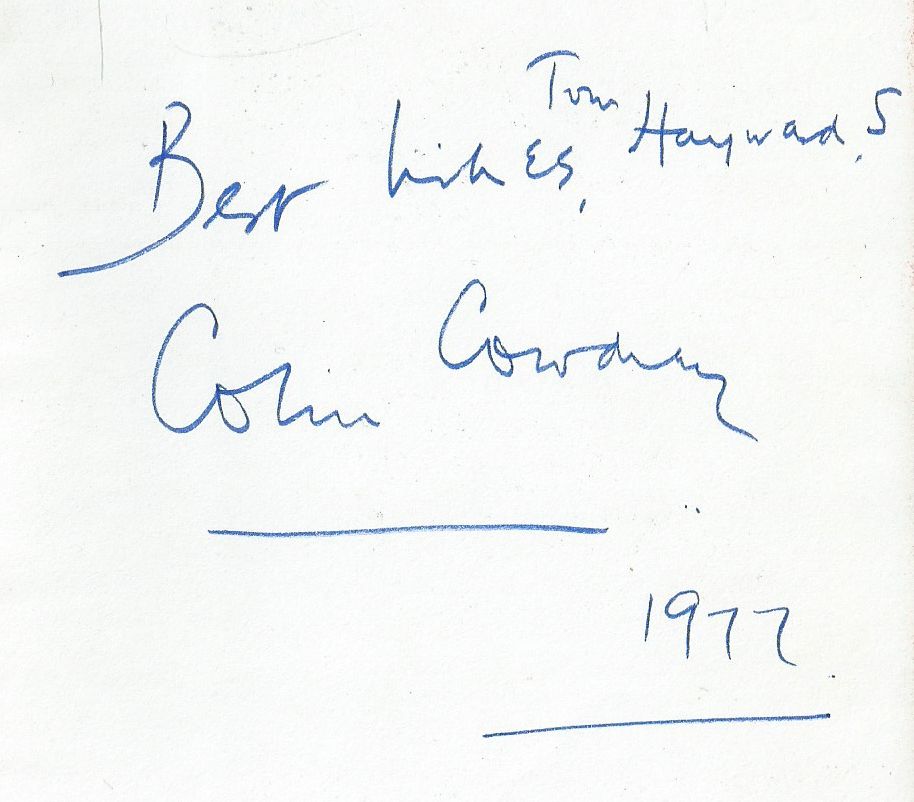 Best wishes, Tom Hayward, S
Colin Cowdrey
1977